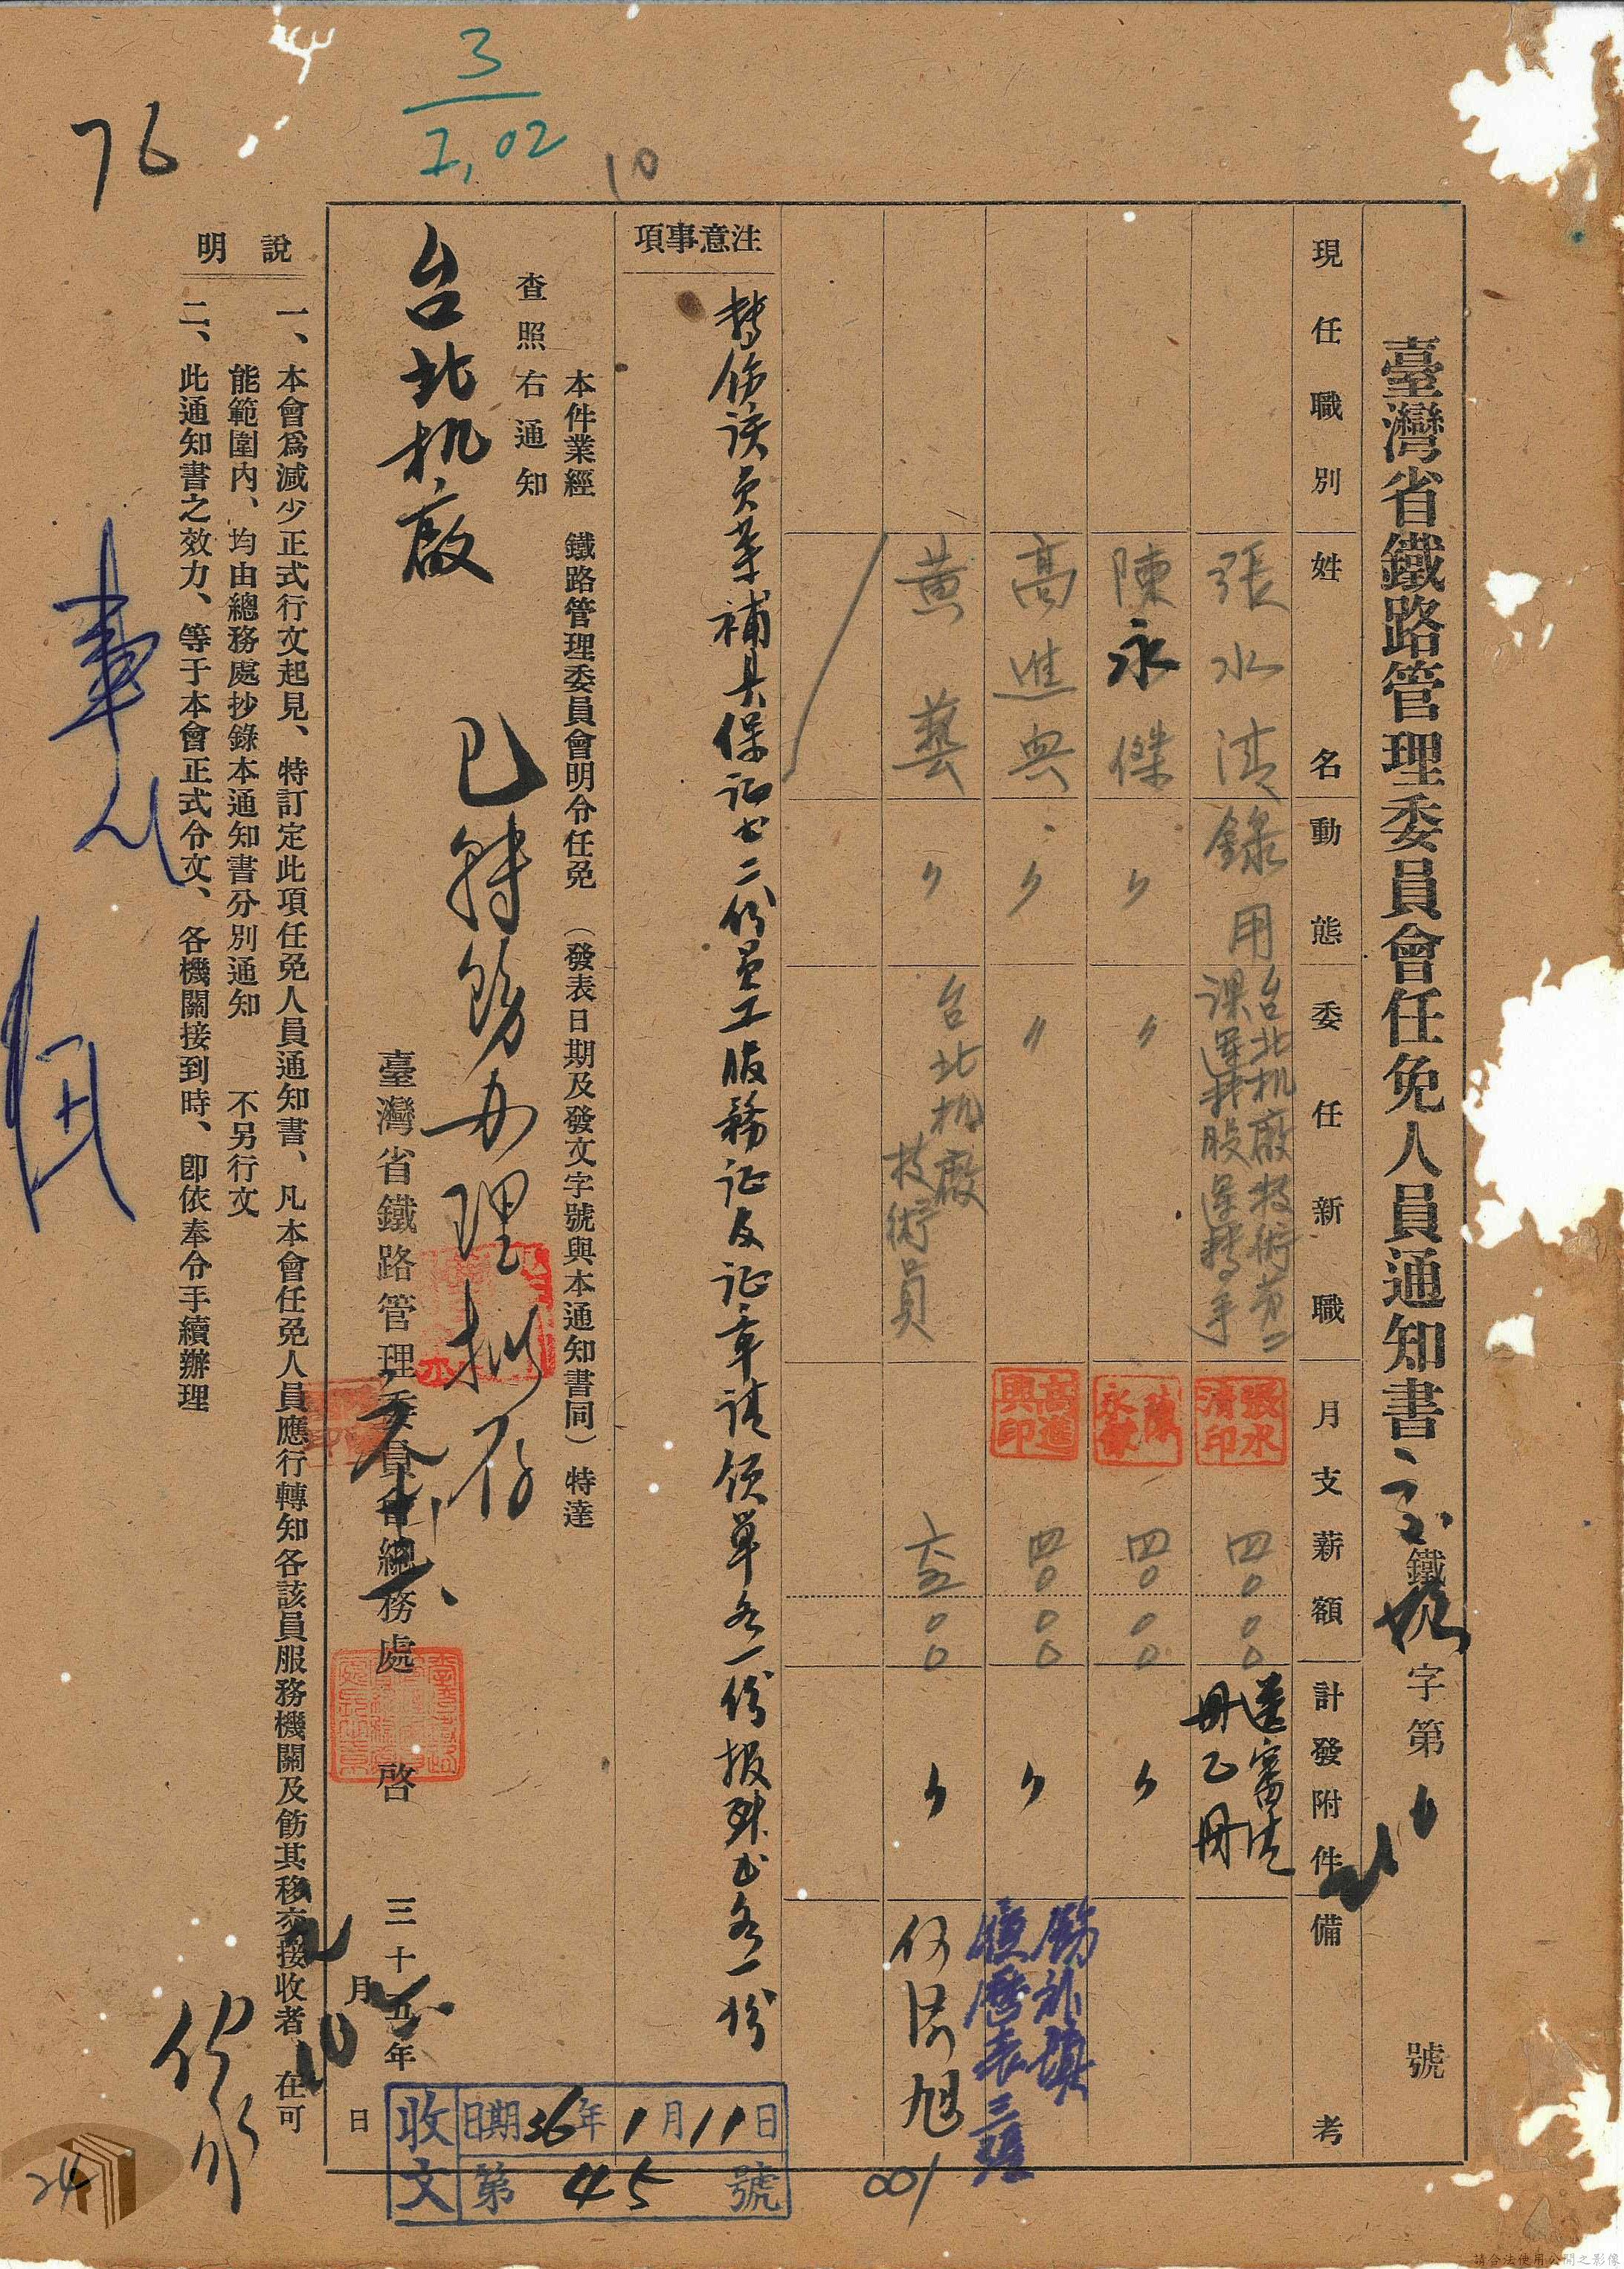 臺灣省鐵路管理委員會任免人員通知書 鐵 字第 號
現任職別 姓名 動態 委任新職 月支薪額 計發附件 備考
張水清 錄用 台北机廠技術第二課運轉股運轉手 四〇〇〇
張水清印
陳永傑 〃 〃 四〇〇〇 〃
高進興 〃 〃 四〇〇〇 〃
高進興印
飭補填履歷表三張
黃藝 〃 台北机廠技術員 〃
注意事項
轉飭該員等補具保证书二份員工服務证及证章請領單各一份報到书各一份
本件業經 鐵路管理委員會明令任免(發表日期及發文字號與本通知書同)特達
查照右通知
台北机廠
已轉飭办理拟存
臺灣省鐵路管理委員會總務處 啓 三十五年 月 日
說明
一、本會爲減少正式行文起見、特訂定此項任免人員通知書、凡本會任免人員應行轉知各該員服務機關及飭其移交接收者 在可
能範圍內、均由總務處抄錄本通知書分別通知 不另行文
二、此通知書之效力、等于本會正式令文、各機關接到時、卽依奉令手續辦理
收文 日期36年1月11日
第45號
76
3
10
001
24
請合法使用公開之影像